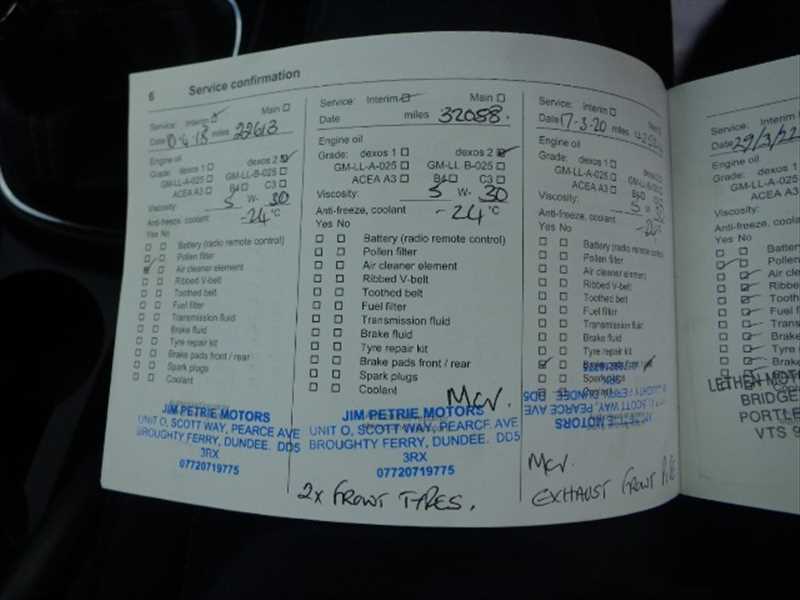 6 Service confirmation
Service: Interim Main
Date miles 22613
Engine oil
Grade: dexos 1 dexos 2
GM-LL-A-025 GM-LL-B-025
ACEA A3 B4 C3
Viscosity: 5 W- 30
Anti-freeze, coolant -24 °C
Yes No
Battery (radio remote control)
Pollen filter
Air cleaner element
Ribbed V-belt
Toothed belt
Fuel filter
Transmission fluid
Brake fluid
Tyre repair kit
Brake pads front / rear
Spark plugs
Coolant
JIM PETRIE MOTORS
UNIT O, SCOTT WAY, PEARCE AVE
BROUGHTY FERRY, DUNDEE. DD5
3RX
07720719775
Service: Interim Main
Date miles 32088.
Engine oil
Grade: dexos 1 dexos 2
GM-LL-A-025 GM-LL B-025
ACEA A3 B4 C3
Viscosity: 5 W- 30
Anti-freeze, coolant -24 °C
Yes No
Battery (radio remote control)
Pollen filter
Air cleaner element
Ribbed V-belt
Toothed belt
Fuel filter
Transmission fluid
Brake fluid
Tyre repair kit
Brake pads front / rear
Spark plugs
Coolant
JIM PETRIE MOTORS
UNIT O, SCOTT WAY, PEARCE AVE
BROUGHTY FERRY, DUNDEE. DD5
3RX
07720719775
2x FRONT TYRES.
Service: Interim
Date 17-3-20 miles
Engine oil
Grade: dexos 1
GM-LL-A-025
ACEA A3
Viscosity: 5
Anti-freeze, coolant
Yes No
Battery (radio remote control)
Pollen filter
Air cleaner element
Ribbed V-belt
Toothed belt
Fuel filter
Transmission fluid
Brake fluid
Tyre repair kit
Brake pads front / rear
Spark plugs
JIM PETRIE MOTORS
SCOTT WAY, PEARCE AVE
BROUGHTY FERRY, DUNDEE. DD5
3RX
07720719775
EXHAUST FRONT
Service: Interim
Date 29/3/22
Engine oil
Grade: dexos 1
GM-LL-A-025
ACEA A3
Viscosity:
Anti-freeze, coolant
Yes No
Batte
Pollen
Air cle
Ribbe
Toothe
Fuel f
Transm
Brake
Tyre r
Brake
LETHEM MOT
BRIDGE
PORTLE
VTS 9